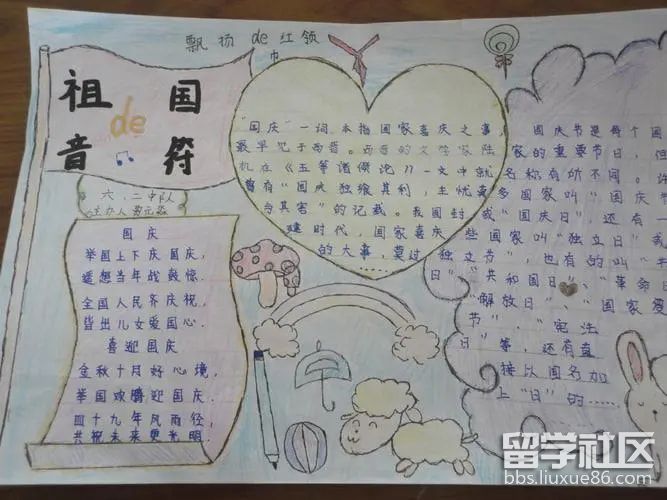 飘扬de红领
巾
祖国
de
音符
六、二中队
国庆
举国上下庆国庆，
遥想当年战鼓惊．
全国人民齐庆祝，
皆出儿女爱国心．
喜迎国庆
金秋十月好心境，
举国欢腾迎国庆．
四十九年风雨径，
共祝未来更光明．
"国庆"一词，本指国家喜庆之事，
最早见于西晋。西晋的文学家陆
机在《五等诸侯论》一文中就
曾有"国庆独飨其利，主忧莫
与其害"的记载。我国封
建时代，国家喜庆
的大事，莫过
……
国庆节是每个国
家的重要节日，但
名称有所不同。许
多国家叫"国庆节
或"国庆日"，还有一
些国家叫"独立日"或
"独立节"，也有的叫"共
"共和国日"、"革命日
"解放日"、"国家爱
节"、"宪法
日"等，还有直
接以国名加
上"日"的……
留学社区
bbs.liuxue86.com